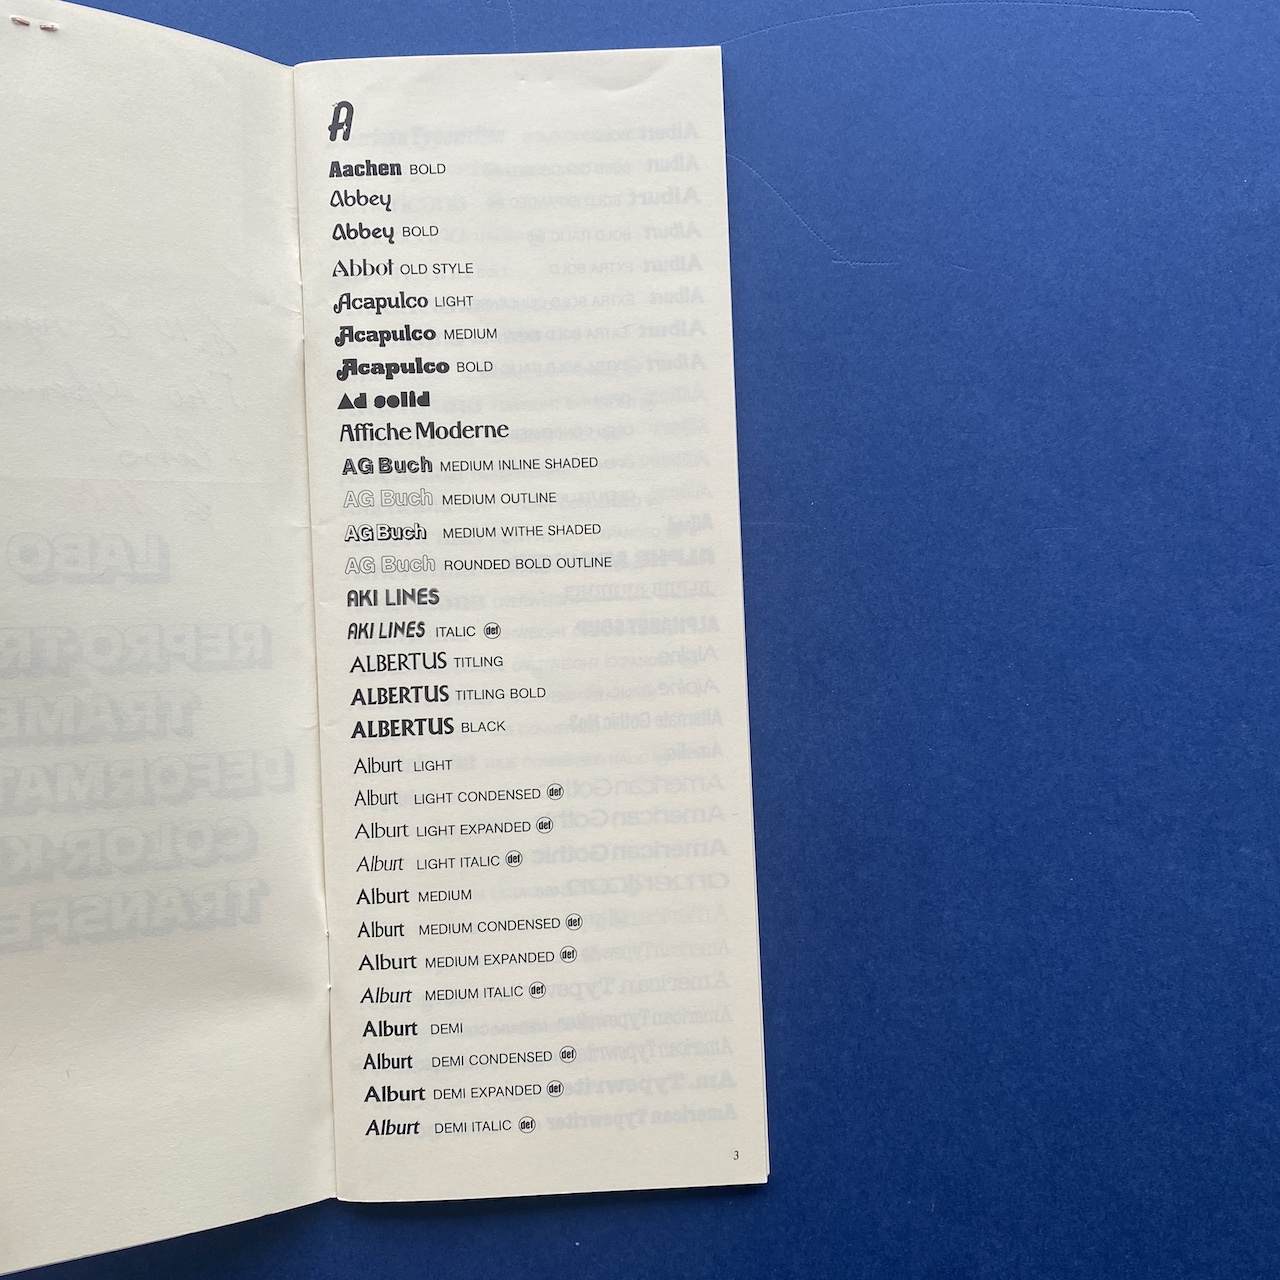 A
Aachen BOLD
Abbey
Abbey BOLD
Abbot OLD STYLE
Acapulco LIGHT
Acapulco MEDIUM
Acapulco BOLD
Ad solid
Affiche Moderne
AG Buch MEDIUM INLINE SHADED
AG Buch MEDIUM OUTLINE
AG Buch MEDIUM WITHE SHADED
AG Buch ROUNDED BOLD OUTLINE
AKI LINES
AKI LINES ITALIC def
ALBERTUS TITLING
ALBERTUS TITLING BOLD
ALBERTUS BLACK
Alburt LIGHT
Alburt LIGHT CONDENSED def
Alburt LIGHT EXPANDED def
Alburt LIGHT ITALIC def
Alburt MEDIUM
Alburt MEDIUM CONDENSED def
Alburt MEDIUM EXPANDED def
Alburt MEDIUM ITALIC def
Alburt DEMI
Alburt DEMI CONDENSED def
Alburt DEMI EXPANDED def
Alburt DEMI ITALIC def
3